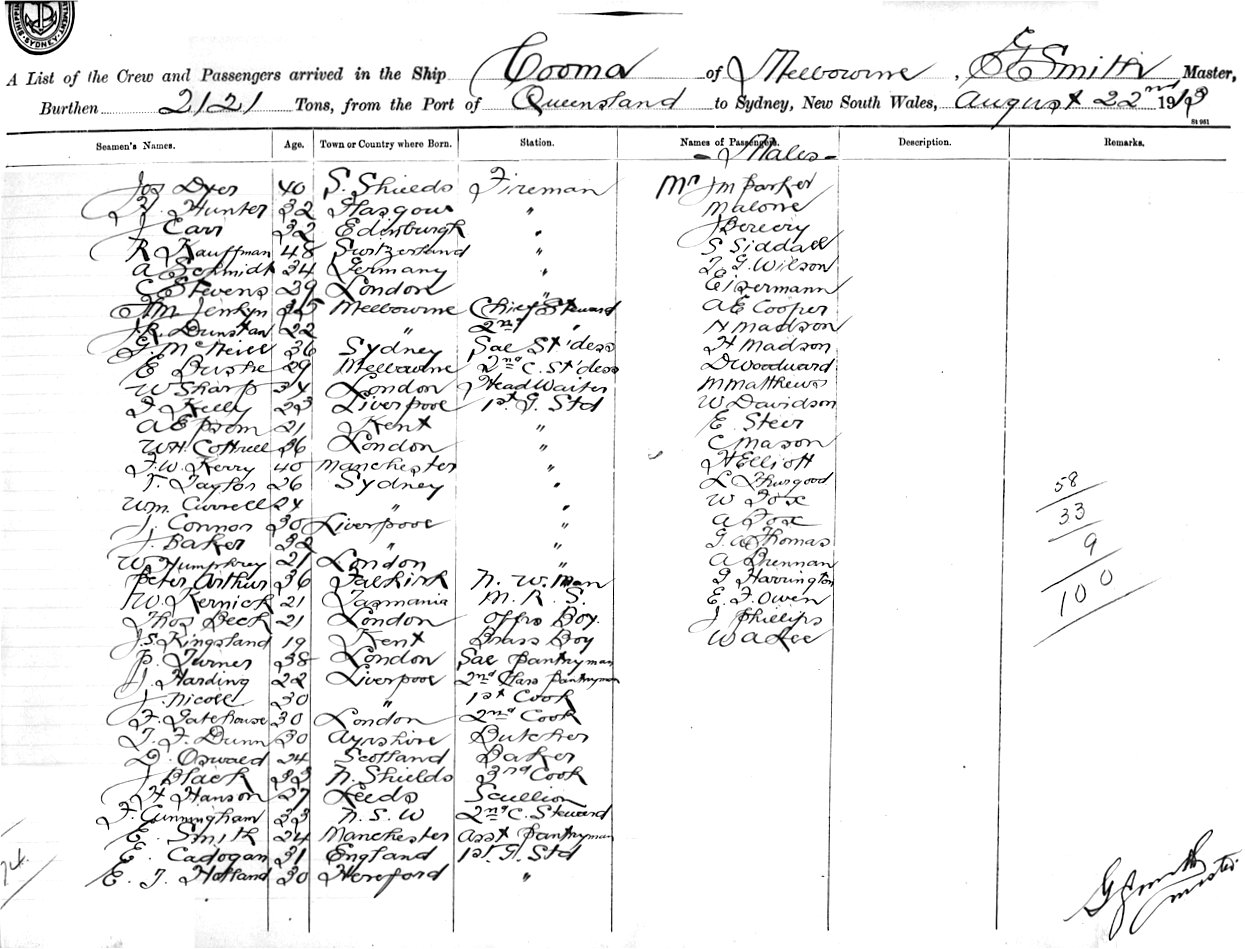 SHIPPING DEPARTMENT SYDNEY
A List of the Crew and Passengers arrived in the Ship Cooma of Melbourne, Smith Master,
Burthen 2121 Tons, from the Port of Queensland to Sydney, New South Wales, August 22nd 1913
St 961
Seamen's Names. Age. Town or Country where Born. Station. Names of Passengers. Description. Remarks.
- Males -
Jos Dyer 40 S. Shields Fireman Mr J M Parker
Hunter 32 Glasgow " Malone
J Carr 32 Edinburgh "
R Kauffman 48 Switzerland " S Siddall
A Schmidt 34 Germany " Wilson
C Stevens 29 London " Eisermann
Jenkyn Melbourne Chief Steward A E Cooper
J R Dunstan 22 " 2nd " N Madson
McNeill 36 Sydney Sal St'dess H Madson
E 29 Melbourne 2nd C. St'dess D Woodward
W Sharp 34 London Head Waiter M Matthews
Kelly 23 Liverpool 1st G. Std W Davidson
A E 21 Kent " E. Steer
W H Cottrell 36 London " C Mason
F. W. Kerry 40 Manchester " H Elliott
T. Taylor 26 Sydney " L Thurgood
Wm. Currell 24 " " W Fox
J. Connor 30 Liverpool " A Fox
J. Baker 32 " " G A Thomas
W Humphrey 21 London " A Brennan
Peter Arthur 36 Falkirk N. W. Man Harrington
W Kernick 21 Tasmania M. R. S. E. F. Owen
Thos Beck 21 London Offrs Boy. J Phillips
J. S. Kingsland 19 Kent Brass Boy W A Lee
P. Turner 38 London Sal Pantryman
J. Harding 22 Liverpool 2nd Class Pantryman
J. Nicoll 30 " 1st Cook
F. Gatehouse 30 London 2nd Cook
F. Dunn 30 Ayrshire Butcher
D. Oswald 24 Scotland Baker
J Black 33 N. Shields 3rd Cook
H Hanson 27 Leeds Scullion
F. Cunningham 33 N. S. W 2nd C. Steward
E. Smith 24 Manchester Asst Pantryman
E. Cadogan 31 England 1st G. Std
E. J Holland 30 Hereford "
58
33
9
100
74
Smith
Master